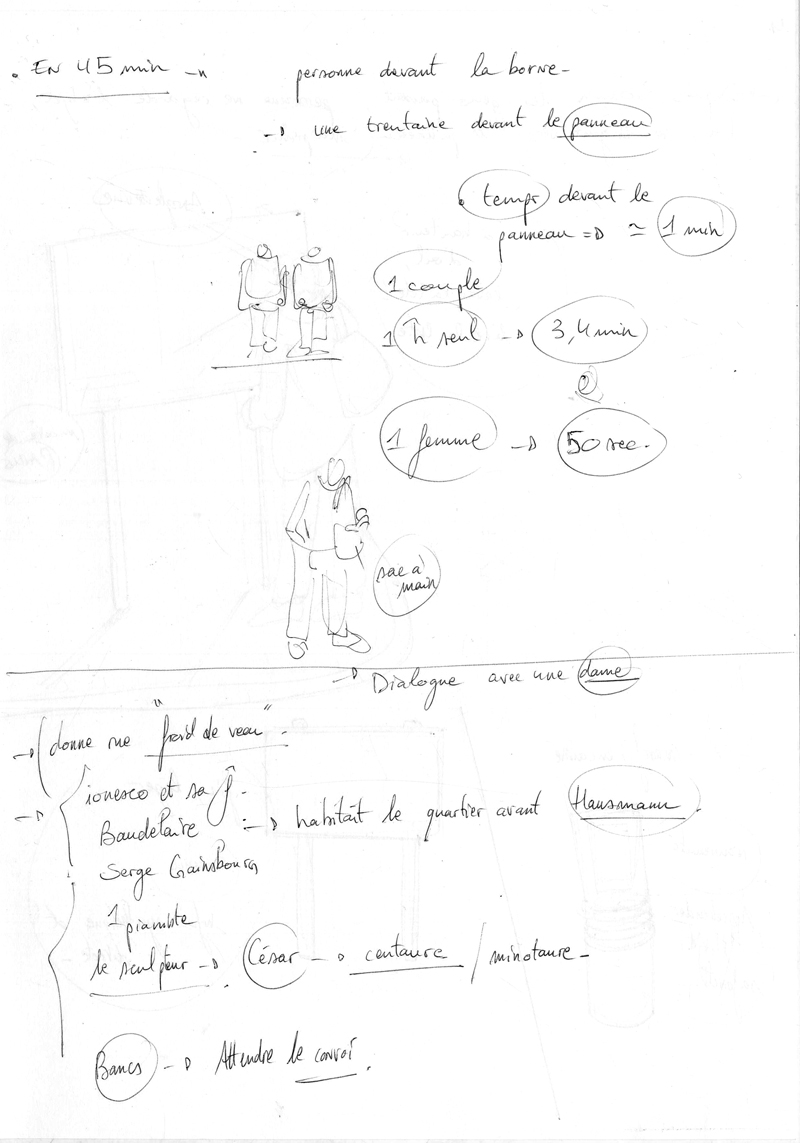 . EN 45 min → personne devant la borne -
→ une trentaine devant le panneau
. temps devant le
panneau => ≃ 1 min
1 couple
1 h̄ seul → 3,4 min
1 femme → 50 sec.
sac à
main
→ Dialogue avec une dame
→ donne rue "froid de veau".
→ ionesco et sa f̂ -
Baudelaire :→ habitait le quartier avant Hausmann.
Serge Gainsbourg
1 pianiste
le sculpteur → César → centaure / minotaure -
Bancs → Attendre le convoi.